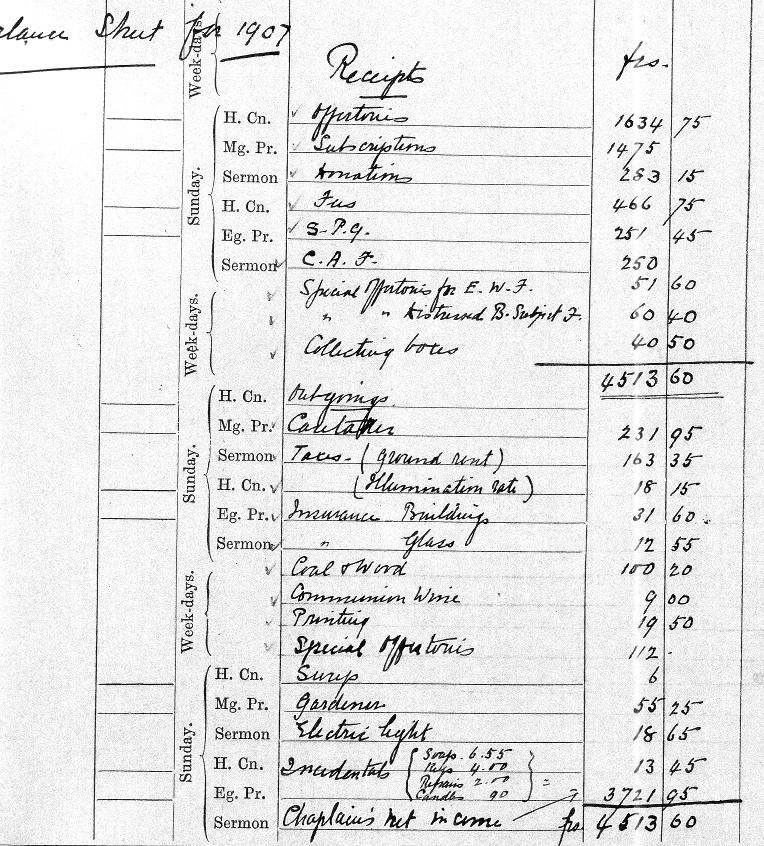 Balance Sheet for 1907
Week-days. Receipts frs.
H. Cn. Offertories 1634 75
Mg. Pr. Subscriptions 1475
Sermon Donations 283 15
Sunday.
H. Cn. Fees 466 75
Eg. Pr. S.P.G. 251 45
Sermon C.A.F. 250
Special Offertories for E.W.F. 51 60
" " Distressed B. Subject F. 60 40
Week-days.
Collecting boxes 40 50
4513 60
H. Cn. Outgoings.
Mg. Pr. Caretaker 231 95
Sermon Taxes - (ground rent) 163 35
Sunday.
H. Cn. (Illumination rate) 18 15
Eg. Pr. Insurance Buildings 31 60
Sermon " Glass 12 55
Coal & Wood 100 20
Week-days.
Communion Wine 9 00
Printing 19 50
Special Offertories 112 -
H. Cn. 6
Mg. Pr. Gardener 55 25
Sermon Electric light 18 65
Sunday.
H. Cn. Incidentals 13 45
Soap. 6.55
4.00
Repairs 2.00
Candles 90 =
Eg. Pr. 3721 95
Sermon Chaplain's net income frs 4513 60